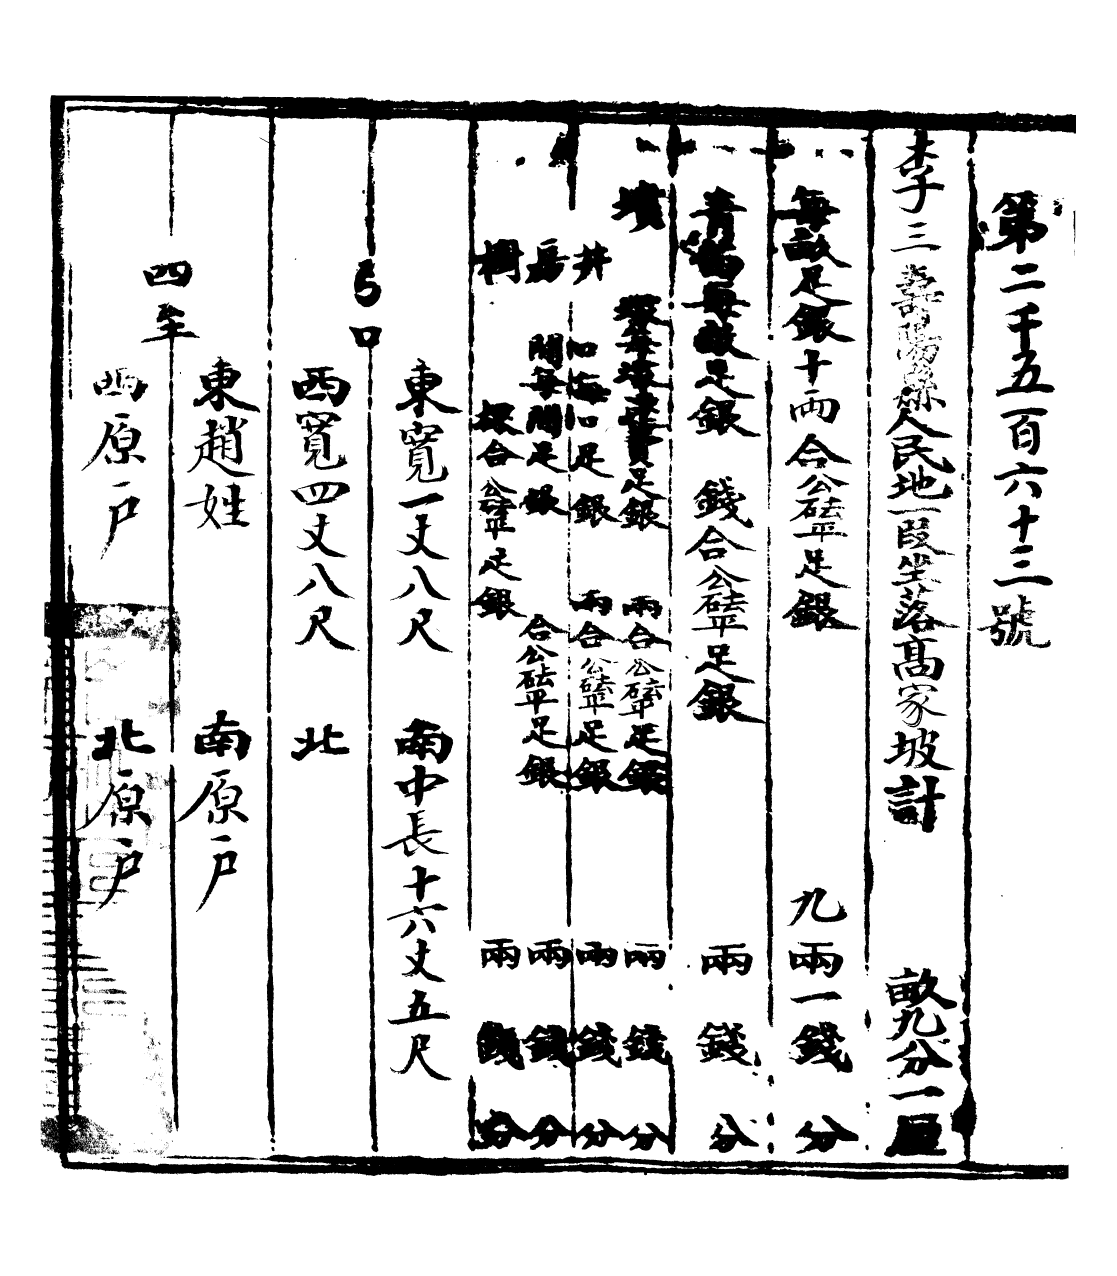 第二千五百六十三號
李三壽陽縣人民地一段坐落高家坡計 畝九分一厘
每畝足銀十兩合公砝平足銀 九兩一錢 分
青苗每畝足銀 錢合公砝平足銀 兩 錢 分
墳 塚每塚遷費足銀 兩合公砝平足銀 兩 錢 分
井 口每口足銀 兩合公砝平足銀 兩 錢 分
房 間每間足銀 合公砝平足銀 兩 錢 分
樹 棵合公砝平足銀 兩 錢 分
東寬一丈八尺 南中長十六丈五尺
弓口
西寬四丈八尺 北
東趙姓 南原戶
四至
西原戶 北原戶